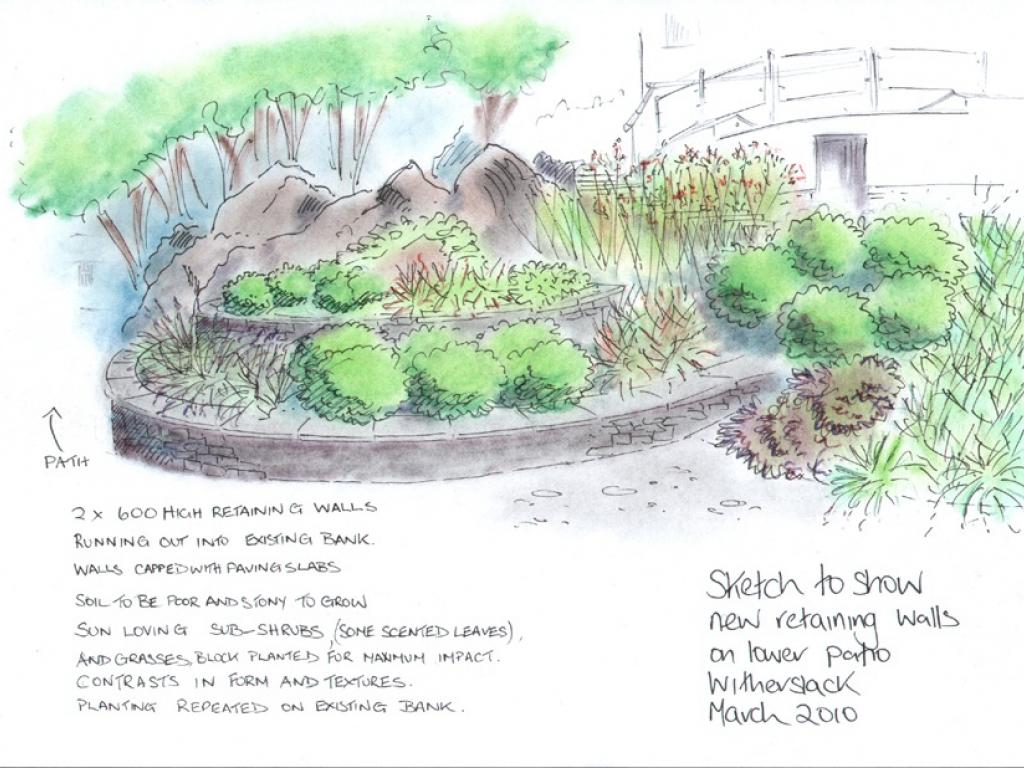 PATH
2 x 600 HIGH RETAINING WALLS
RUNNING OUT INTO EXISTING BANK.
WALLS CAPPED WITH PAVING SLABS
SOIL TO BE POOR AND STONY TO GROW
SUN LOVING SUB-SHRUBS, (SOME SCENTED LEAVES),
AND GRASSES, BLOCK PLANTED FOR MAXIMUM IMPACT.
CONTRASTS IN FORM AND TEXTURES.
PLANTING REPEATED ON EXISTING BANK.
Sketch to show
new retaining walls
on lower patio
Witherslack
March 2010